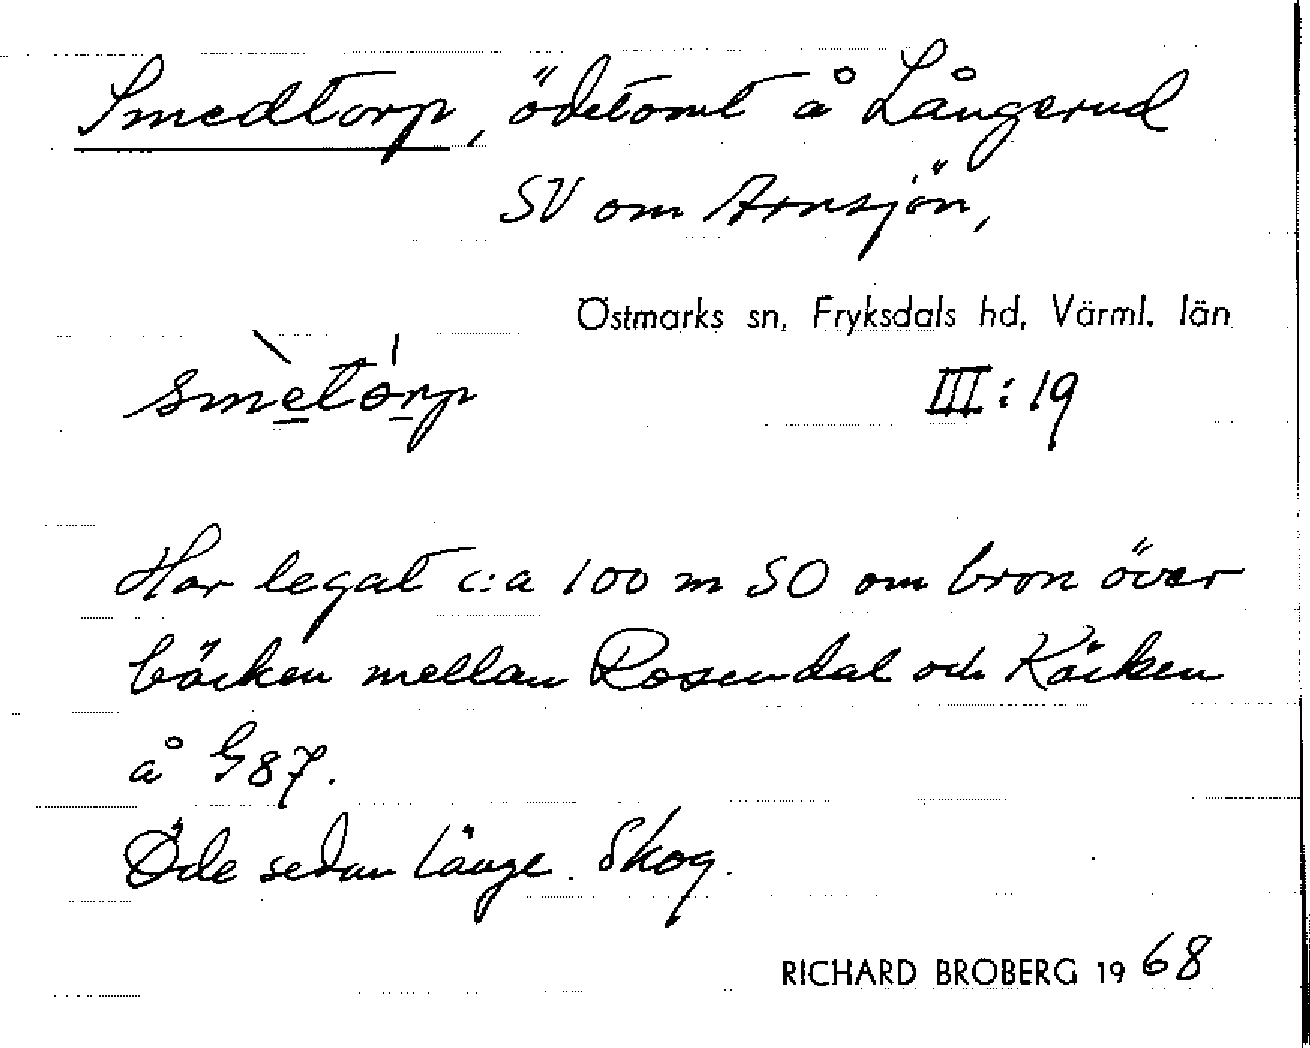 Smedtorp, ödetomt å Långerud
SV om Arnsjön,
Östmarks sn, Fryksdals hd, Värml. län
smètórp III:19
Har legat c:a 100 m SO om bron över
bäcken mellan Rosendal och Käcken
å G87.
Öde sedan länge. Skog.
RICHARD BROBERG 1968